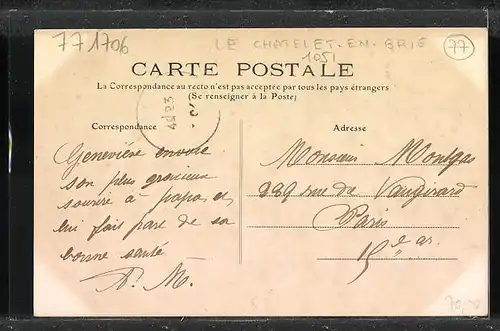 771706
LE CHATELET-EN-BRIE
77
1051
CARTE POSTALE
La Correspondance au recto n'est pas acceptée par tous les pays étrangers
(Se renseigner à la Poste)
Correspondance
Adresse
Geneviève envoie
son plus gracieux
sourire à papa et
lui fait part de sa
bonne santé
Monsieur
289 rue de Vaugirard
Paris
15e ar.